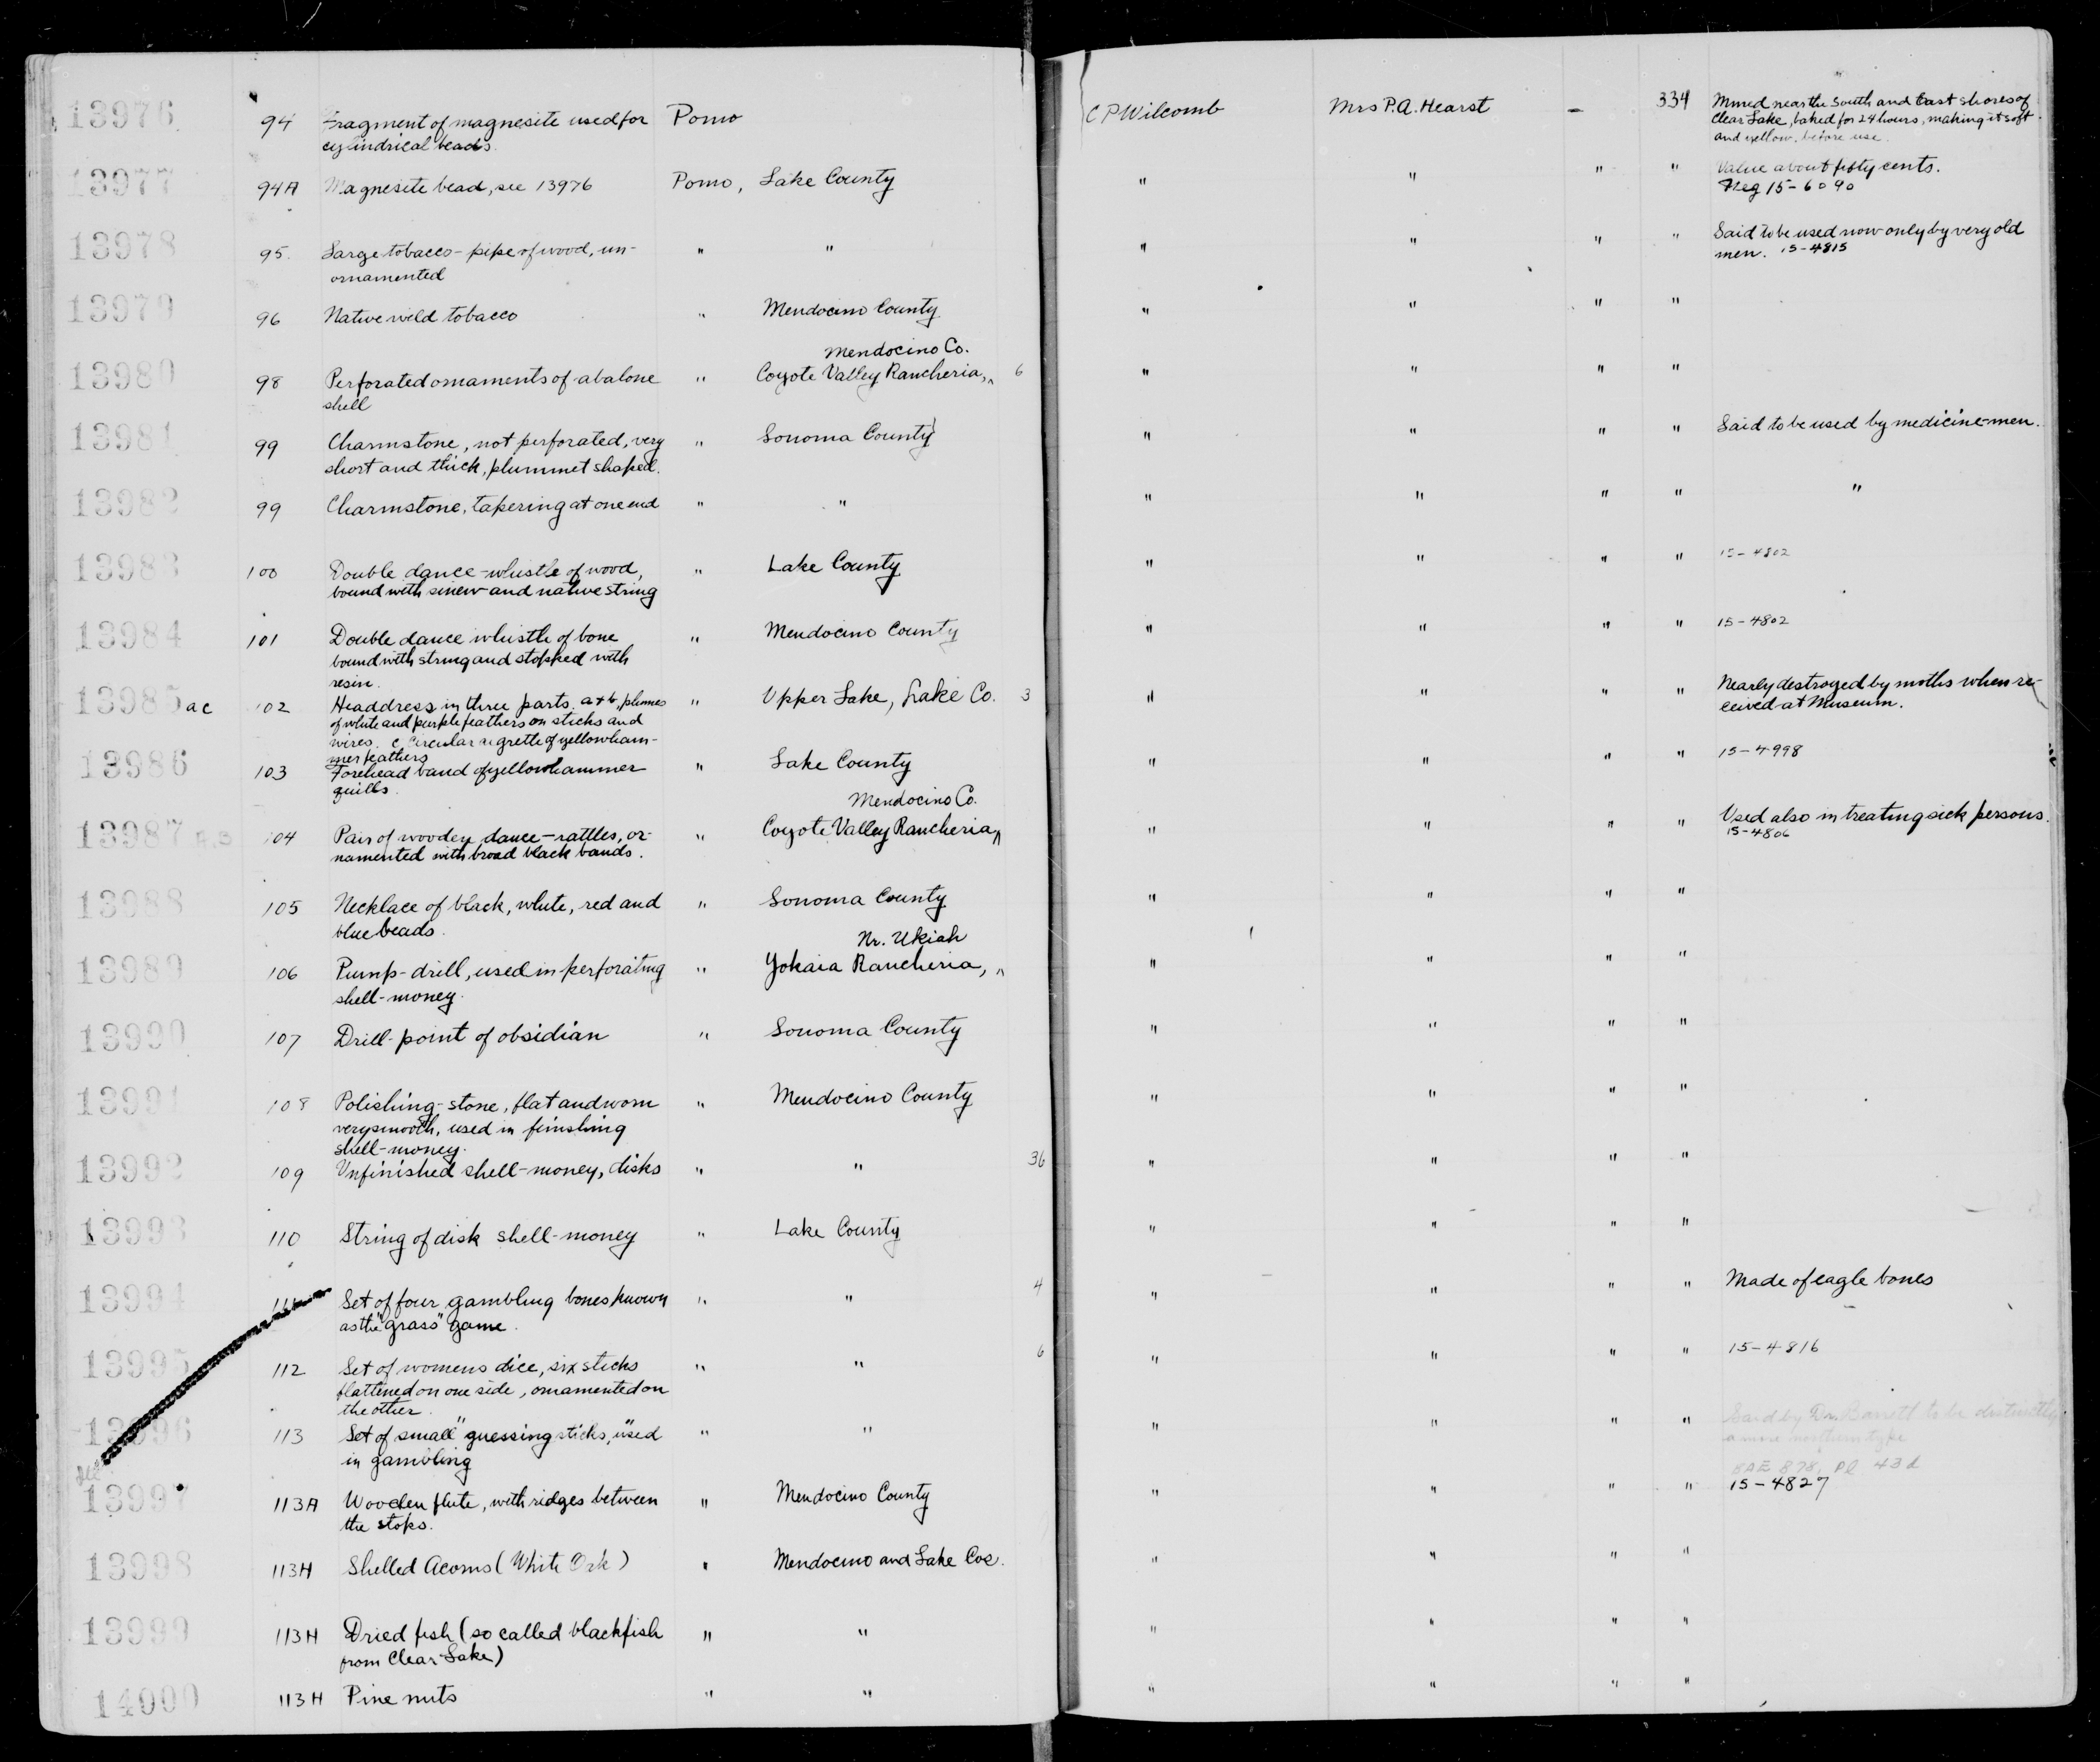 13976 94 Fragment of magnesite used for Pomo C P Wilcomb Mrs P.A. Hearst – 334 Mined near the South and East shores of
cylindrical beads. Clear Lake, baked for 24 hours, making it soft
and yellow, before use.
13977 94A Magnesite bead, see 13976 Pomo, Lake County " " " " Value about fifty cents.
Neg 15-6090
13978 95. Large tobacco-pipe of wood, un- " " " " " " Said to be used now only by very old
ornamented men. 15-4815
13979 96 Native wild tobacco " Mendocino County " " " "
Mendocino Co.
13980 98 Perforated ornaments of abalone " Coyote Valley Rancheria, ^ 6 " " " "
shell
13981 99 Charmstone, not perforated, very " Sonoma County " " " " Said to be used by medicine-men.
short and thick, plummet shaped.
13982 99 Charmstone, tapering at one end " " " " " " "
13983 100 Double dance-whistle of wood, " Lake County " " " " 15-4802
bound with sinew and native string
13984 101 Double dance whistle of bone " Mendocino County " " " " 15-4802
bound with string and stopped with
resin.
13985 ac 102 Headdress in three parts. a+b, plumes " Upper Lake, Lake Co. 3 " " " " Nearly destroyed by moths when re-
of white and purple feathers on sticks and ceived at Museum.
wires. c circular aigrette of yellowham-
mer feathers
13986 103 Forehead band of yellowhammer " Lake County " " " " 15-4998
quills.
Mendocino Co.
13987 A,B 104 Pair of wooden dance-rattles, or- " Coyote Valley Rancheria ^ " " " " Used also in treating sick persons.
namented with broad black bands. 15-4806
13988 105 Necklace of black, white, red and " Sonoma County " " " "
blue beads.
Nr. Ukiah
13989 106 Pump-drill, used in perforating " Yokaia Rancheria, ^ " " " "
shell-money.
13990 107 Drill-point of obsidian " Sonoma County " " " "
13991 108 Polishing-stone, flat and worn " Mendocino County " " " "
very smooth, used in finishing
shell-money.
13992 109 Unfinished shell-money, disks " " 36 " " " "
13993 110 String of disk shell-money " Lake County " " " "
13994 111 Set of four gambling bones known " " 4 " " " " Made of eagle bones
as the "grass" game.
13995 112 Set of womens dice, six sticks " " 6 " " " " 15-4816
flattened on one side, ornamented on
the other.
13996 113 Set of small "guessing sticks," used " " " " " " Said by Dr. Barrett to be distinctly
in gambling a more northern type
BAE B78, Pl 43d
13997 113A Wooden flute, with ridges between " Mendocino County " " " " 15-4827
the stops.
13998 113H Shelled Acorns (White Oak) " Mendocino and Lake Cos. " " " "
13999 113H Dried fish (so called blackfish " " " " " "
from Clear Lake)
14000 113H Pine nuts " " " " " "